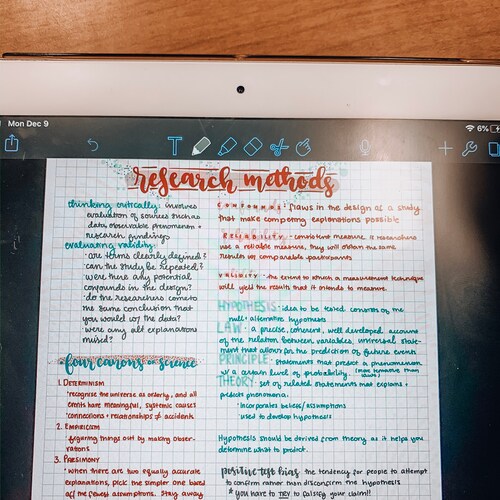 Mon Dec 9
6%
T
research methods
thinking critically: involves
evaluation of sources such as
data, observable phenomenon +
research findings
evaluating validity:
· are terms clearly defined?
· can the study be repeated?
· were there any potential
confounds in the design?
· do the researchers come to
the same conclusion that
you would w/ the data?
· were any alt explanations
missed?
four canons of science
1. Determinism
· recognize the universe as orderly, and all
events have meaningful, systematic causes
· connections + relationships ≠ accidents
2. Empiricism
· figuring things out by making obser-
vations
3. Parsimony
· when there are two equally accurate
explanations, pick the simpler one based
off the fewest assumptions. Stay away
confounds: flaws in the design of a study
that make competing explanations possible
Reliability: consistent measure. is researchers
use a reliable measure, they will obtain the same
results w/ comparable participants
validity: the extent to which a measurement technique
will yield the results that it intends to measure.
HYPOTHESIS: idea to be tested. consists of the
null + alternative hypothesis
LAW: a precise, coherent, well developed account
of the relation between variables, universal state-
ment that allows for the prediction of future events
PRINCIPLE: statements that predict a phenomenon
w/ a certain level of probability. (more tentative than
laws)
THEORY: set of related statements that explains +
predicts phenomena.
· incorporates beliefs/assumptions
· used to develop hypothesis
Hypothesis should be derived from theory as it helps you
determine what to predict.
positive test bias: the tendency for people to attempt
to confirm rather than disconfirm the hypothesis
* you have to TRY to falsify your claim!